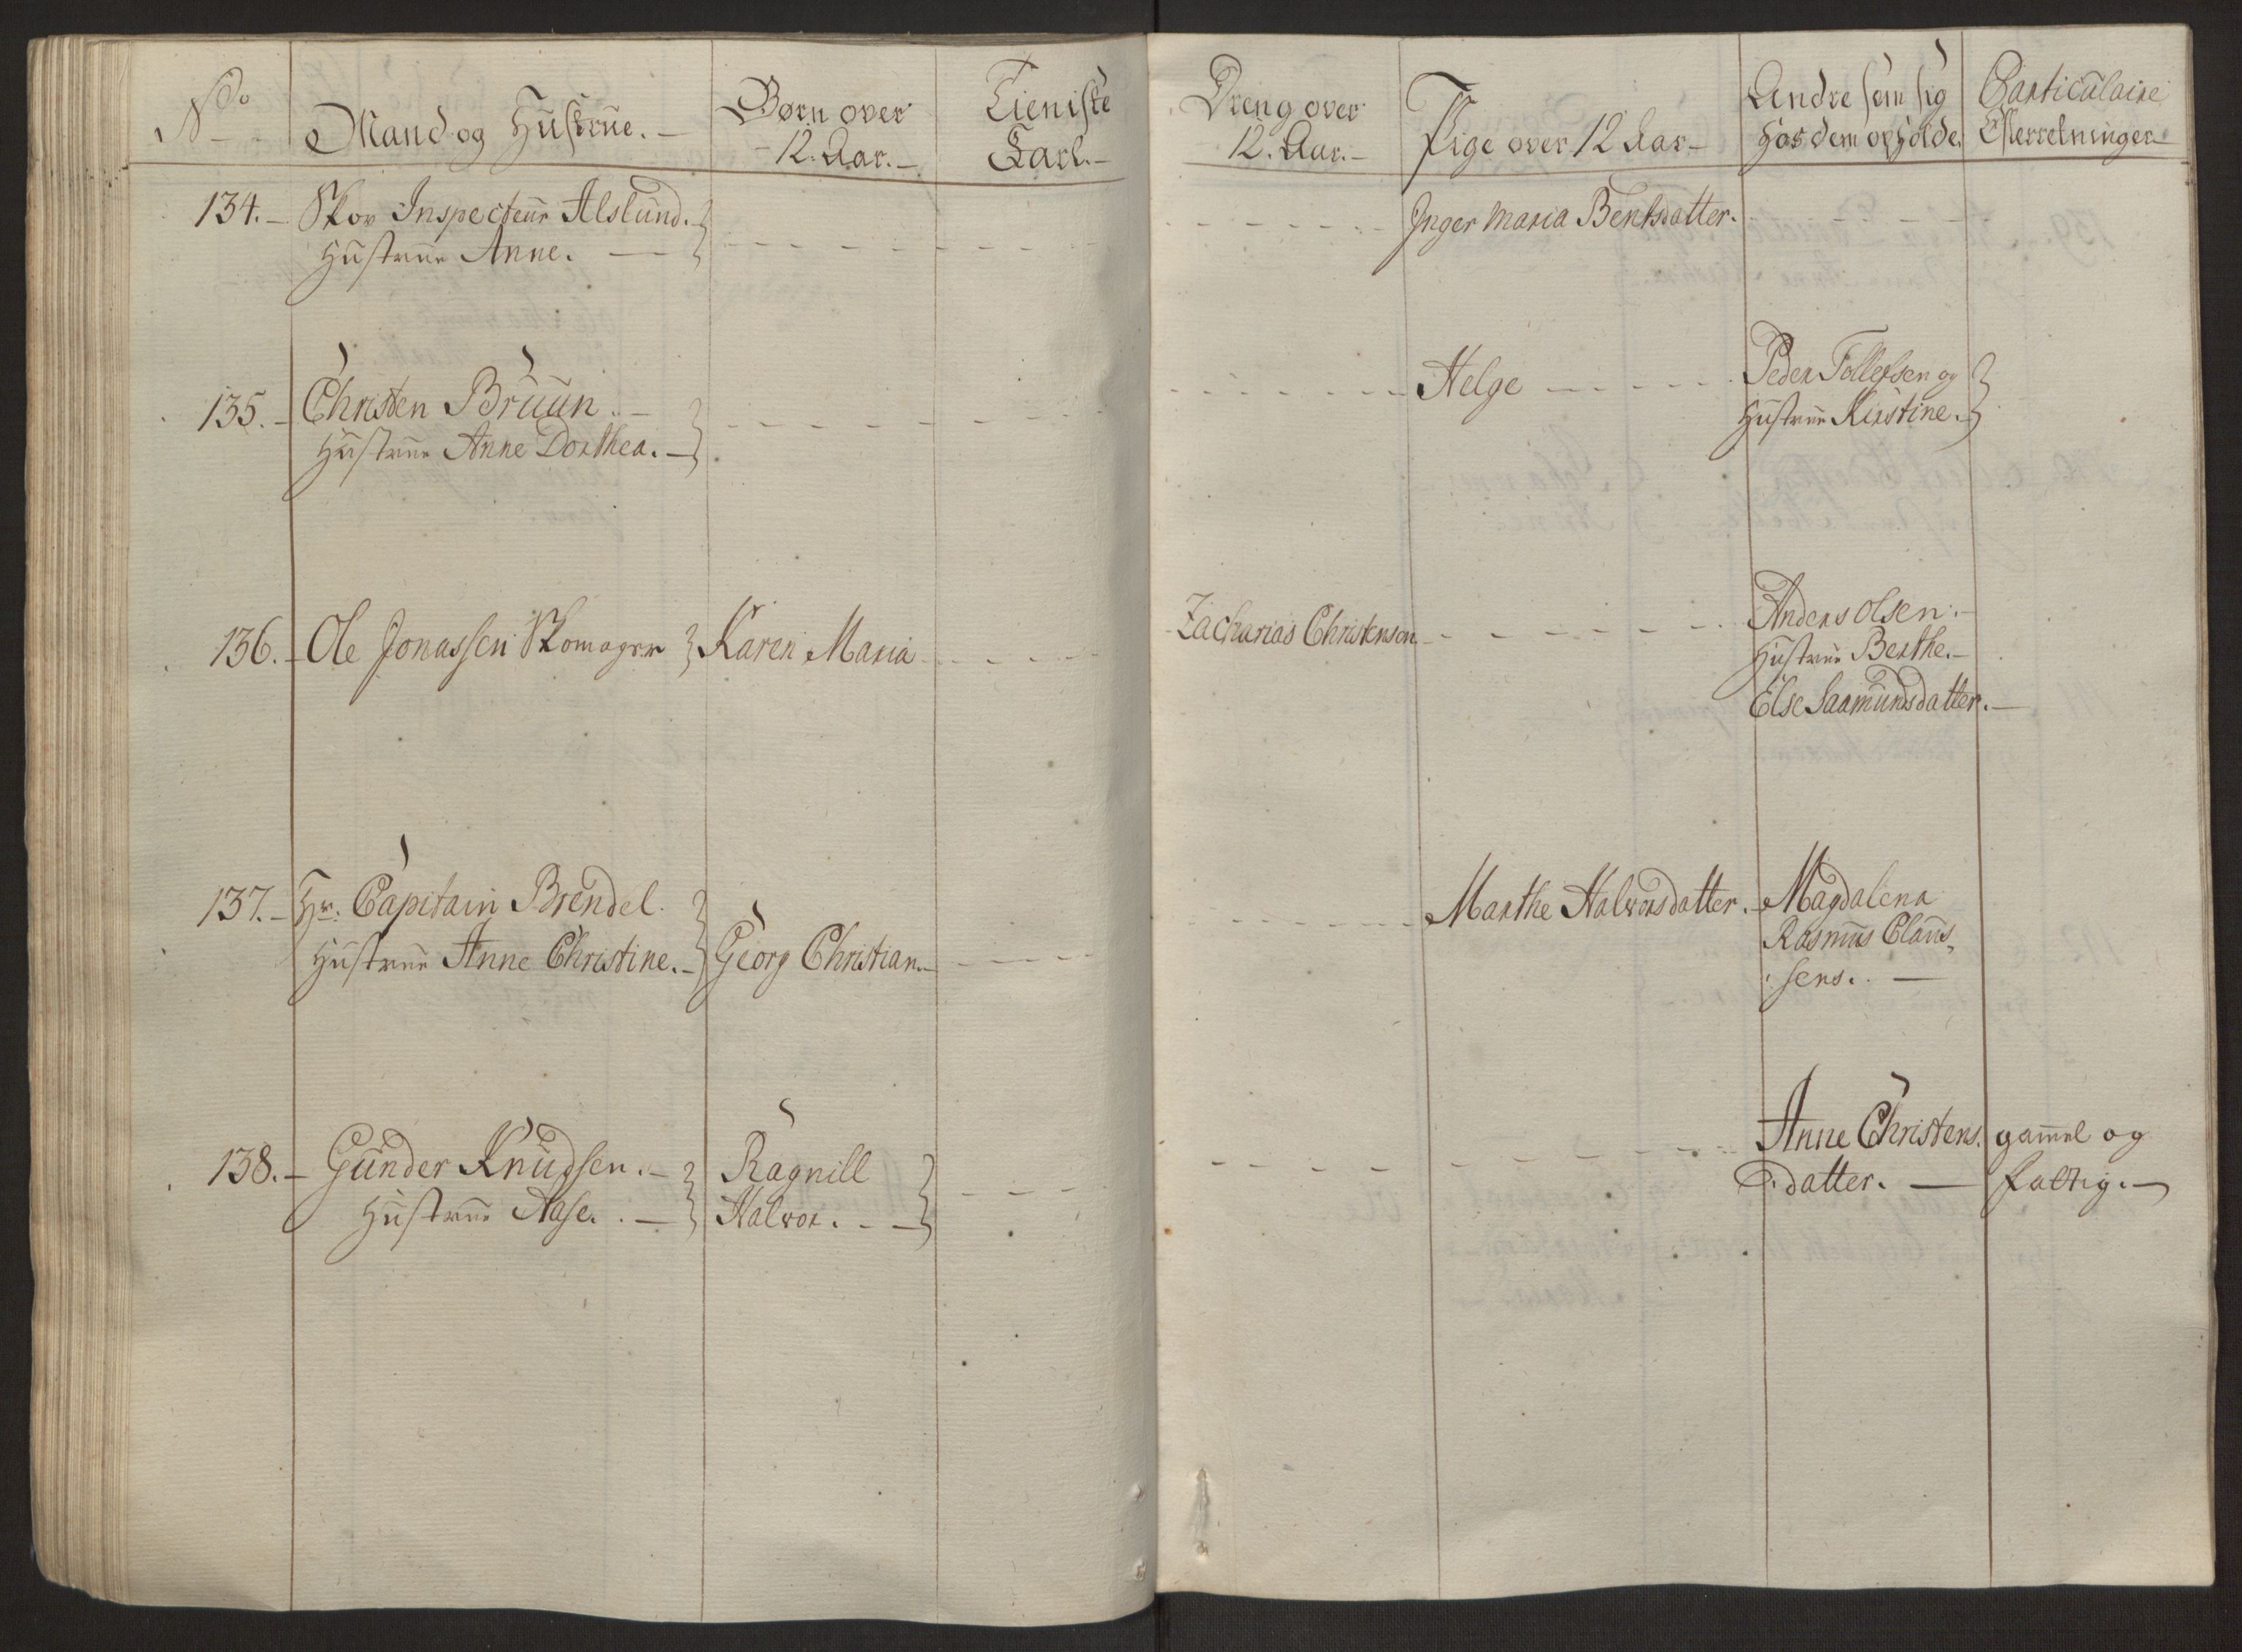 No Mand og Hustrue. Børn over 12. Aar. Tieniste Karl. Dreng over 12. Aar. Pige over 12 Aar Andre som sig hos dem opholde. Particulaire Efterretninger
134. Skov Inspecteur Alslund. Inger Maria Bentsdatter.
Hustrue Anne.
135. Christen Bruun. Helge Peder Tollefsen og
Hustrue Anne Dorthea. Hustrue Kirstine.
136. Ole Jonassen Skomager Karen Maria Zacharias Christensen Anders Olsen.
Hustrue Berthe.
Else Saamundsdatter.
137. Hr. Capitain Brendel. Marthe Halvorsdatter. Magdalena
Hustrue Anne Christine. Georg Christian. Rasmus Claus
sens.
138. Gunder Knudsen. Ragnill Anne Christens. gamel og
Hustrue Aase. Halvor. datter. fattig.